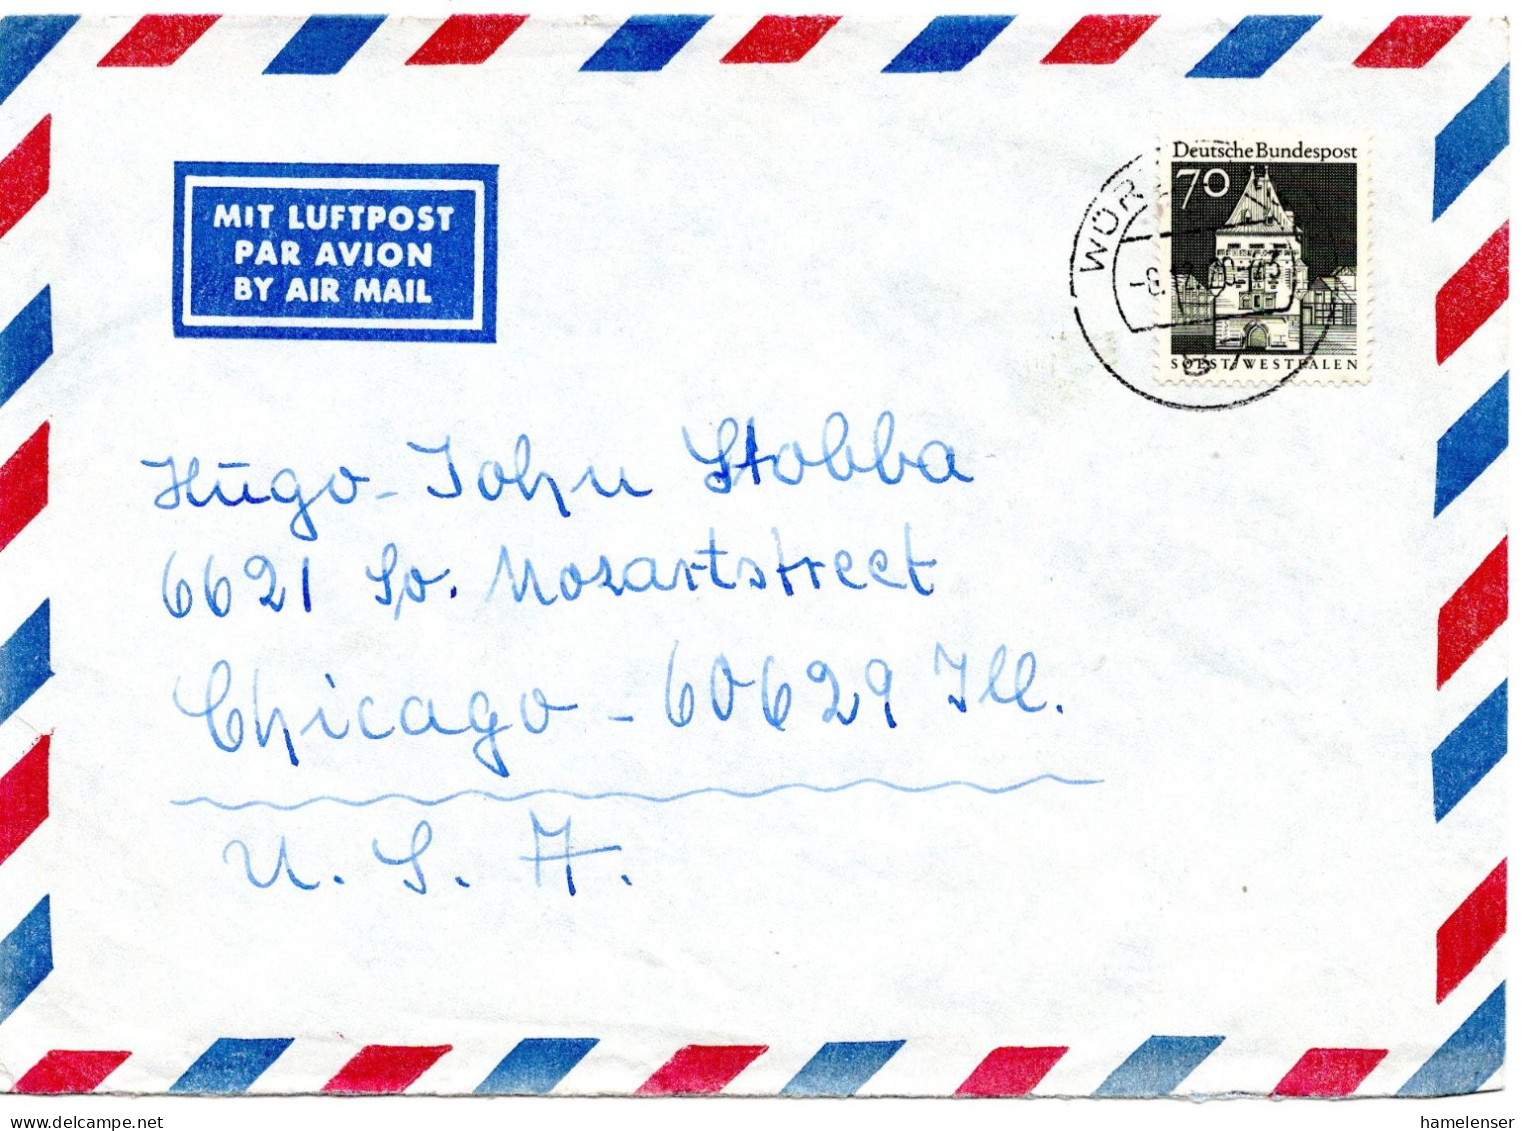 MIT LUFTPOST
PAR AVION
BY AIR MAIL
Deutsche Bundespost
70
SOEST/WESTFALEN
Hugo-John Stobba
6621 So. Mozartstreet
Chicago - 60629 Ill.
U. S. A.
hamelenser